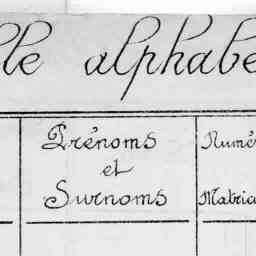 ble alphabe
Prénoms
et
Surnoms
Numé
Matric